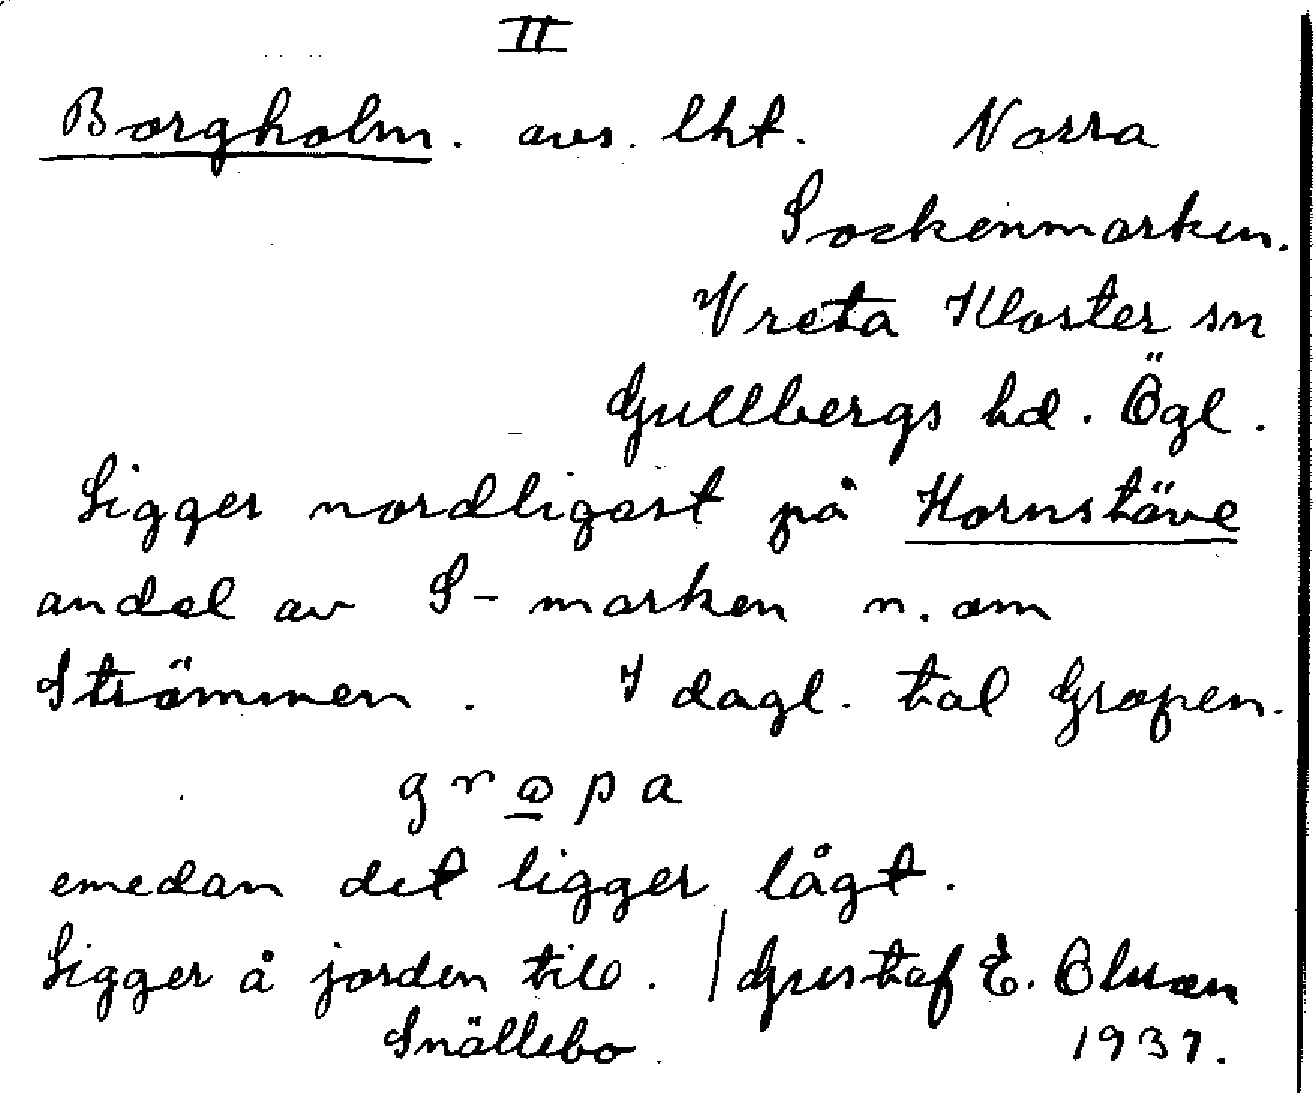 II
Borgholm. avs. lht. Norra
Sockenmarken.
Vreta Kloster sn
Gullbergs hd. Ögl.
Ligger nordligast på Hornstäve
andel av S-marken n. om
Strömmen. I dagl. tal Gropen.
gropa
emedan det ligger lågt.
Ligger å jorden till. / Gustaf E. Olsson
Snällebo 1937.